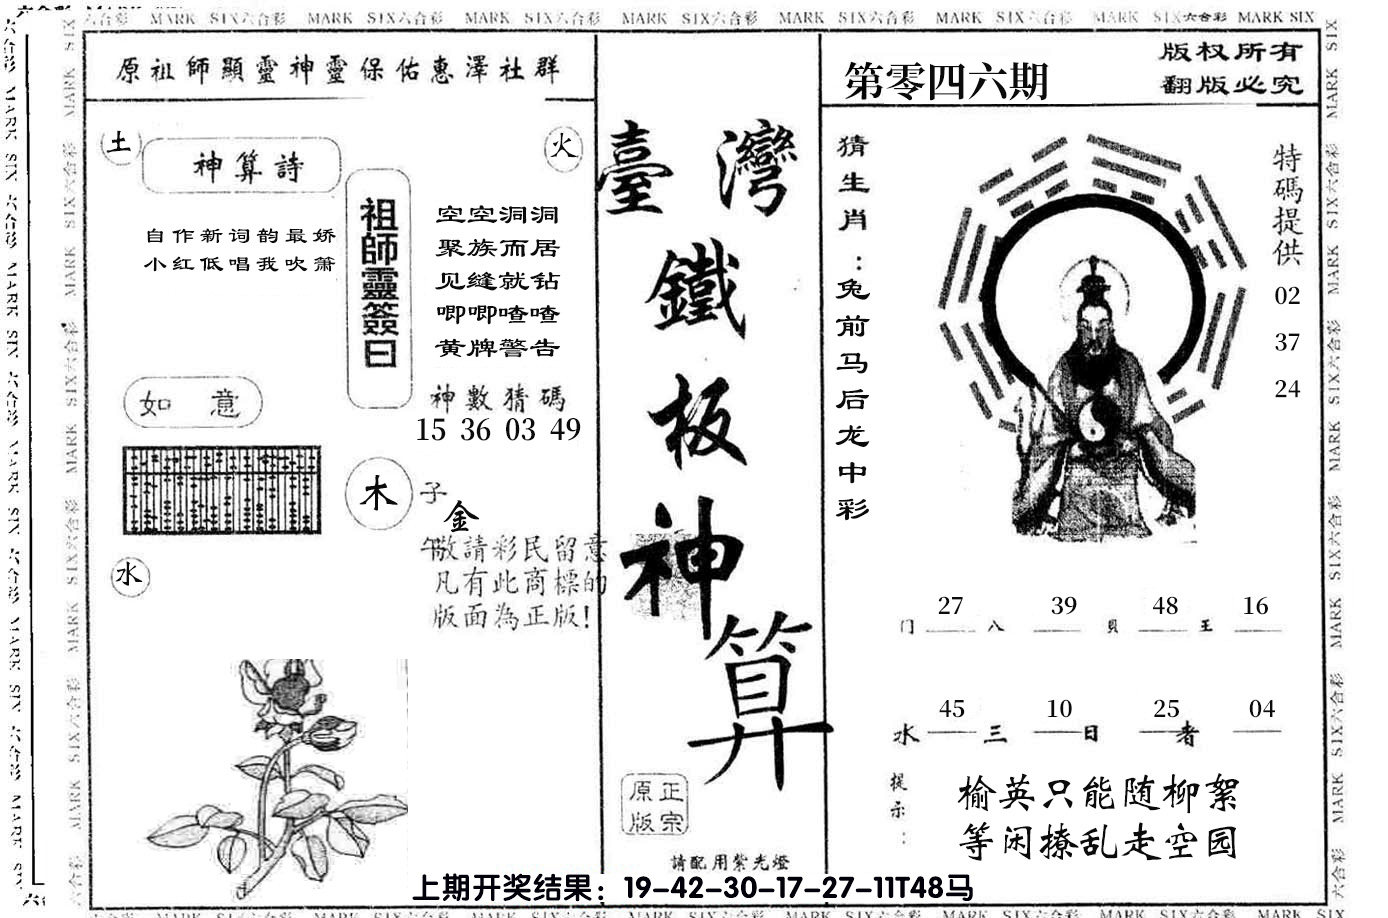 六合彩 MARK SIX六合彩 MARK SIX六合彩 MARK SIX六合彩 MARK SIX六合彩 MARK SIX六合彩 MARK SIX六合彩 MARK SIX六合彩 MARK SIX
原祖師顯靈神靈保佑惠澤社群
土
神算詩
火
自作新词韵最娇
小红低唱我吹萧
祖師靈簽曰
空空洞洞
聚族而居
见缝就钻
唧唧喳喳
黄牌警告
如 意
神數猜碼
15 36 03 49
木
子
金
午
敬請彩民留意
凡有此商標的
版面為正版!
水
臺灣
鐵
板
神
算
正宗
原版
請配用紫光燈
第零四六期
版权所有
翻版必究
猜生肖:兔前马后龙中彩
特碼提供
02
37
24
27 39 48 16
门 八 貝 王
45 10 25 04
水 三 日 者
提示:
榆英只能随柳絮
等闲撩乱走空园
上期开奖结果：19-42-30-17-27-11T48马